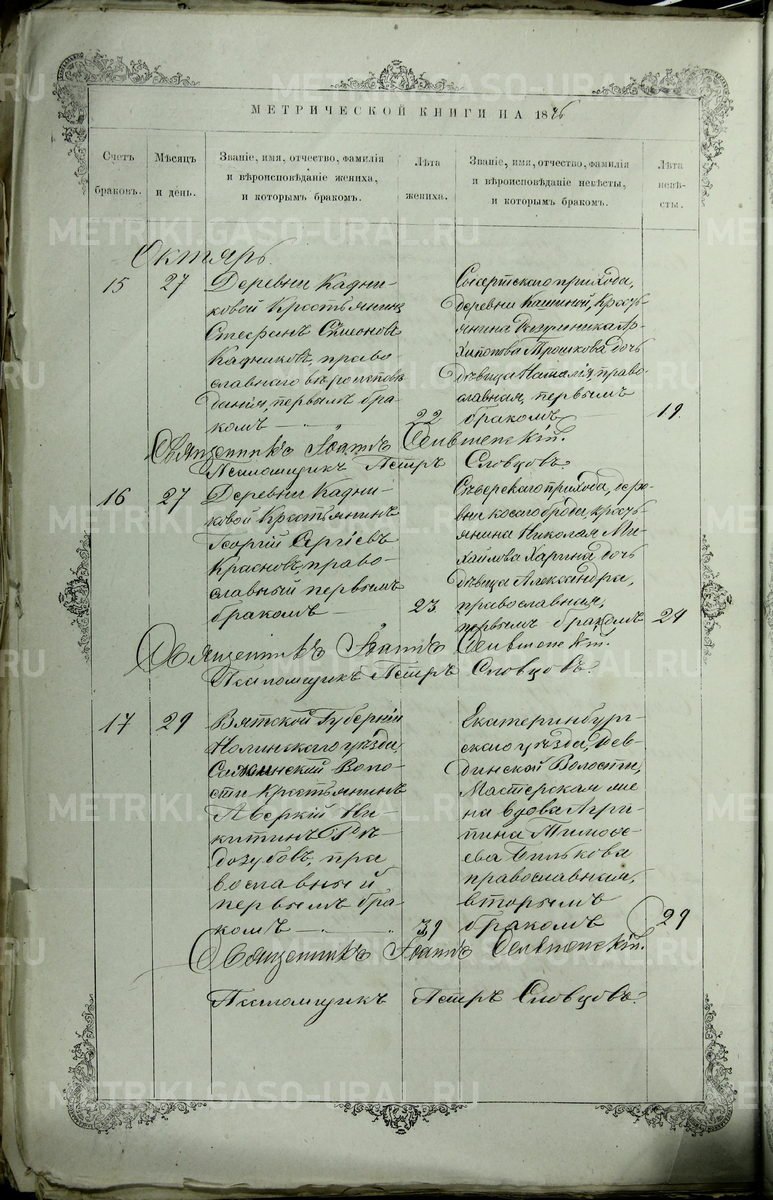 МЕТРИЧЕСКОЙ КНИГИ НА 1876
Счетъ браковъ.
Мѣсяцъ и день.
Званіе, имя, отчество, фамилія
и вѣроисповѣданіе жениха,
и которымъ бракомъ.
Лѣта жениха.
Званіе, имя, отчество, фамилія
и вѣроисповѣданіе невѣсты,
и которымъ бракомъ.
Лѣта невѣ-
сты.
Октяръ.
15 27 Деревни Кадни-
ковой Крестьянинъ
Стефанъ Симеоновъ
Кадниковъ, право-
славнаго вѣроисповѣ
данія, первымъ бра-
комъ 22
Сысертскаго прихода,
деревни Кашиной, кресть-
янина Ар-
хипова Трошкова дочь
дѣвица Наталія, право-
славная, первымъ
бракомъ 19
Священникъ Іоаннъ
Псаломщикъ Петръ Словцовъ.
16 27 Деревни Кадни-
ковой Крестьянинъ
Георгій Сергіевъ
Красновъ, право-
славный первымъ
бракомъ 23
Сѣверскаго прихода, дере-
вни косаго брода, кресть-
янина Николая Ми-
хайлова Харина дочь
дѣвица Александра,
православная,
первымъ бракомъ 24
Священникъ Іоаннъ
Псаломщикъ Петръ Словцовъ.
17 29 Вятской Губерніи
Нолинскаго уѣзда
Воло-
сти Крестьянинъ
Аверкій Ни-
китинъ
православный
первымъ бра-
комъ 39
Екатеринбург-
скаго уѣзда,
Волости,
Мастерская же-
на вдова Агри-
пина Тимофе-
ева
православная,
вторымъ
бракомъ 29
Священникъ Іоаннъ
Псаломщикъ Петръ Словцовъ.
METRIKI.GASO-URAL.RU